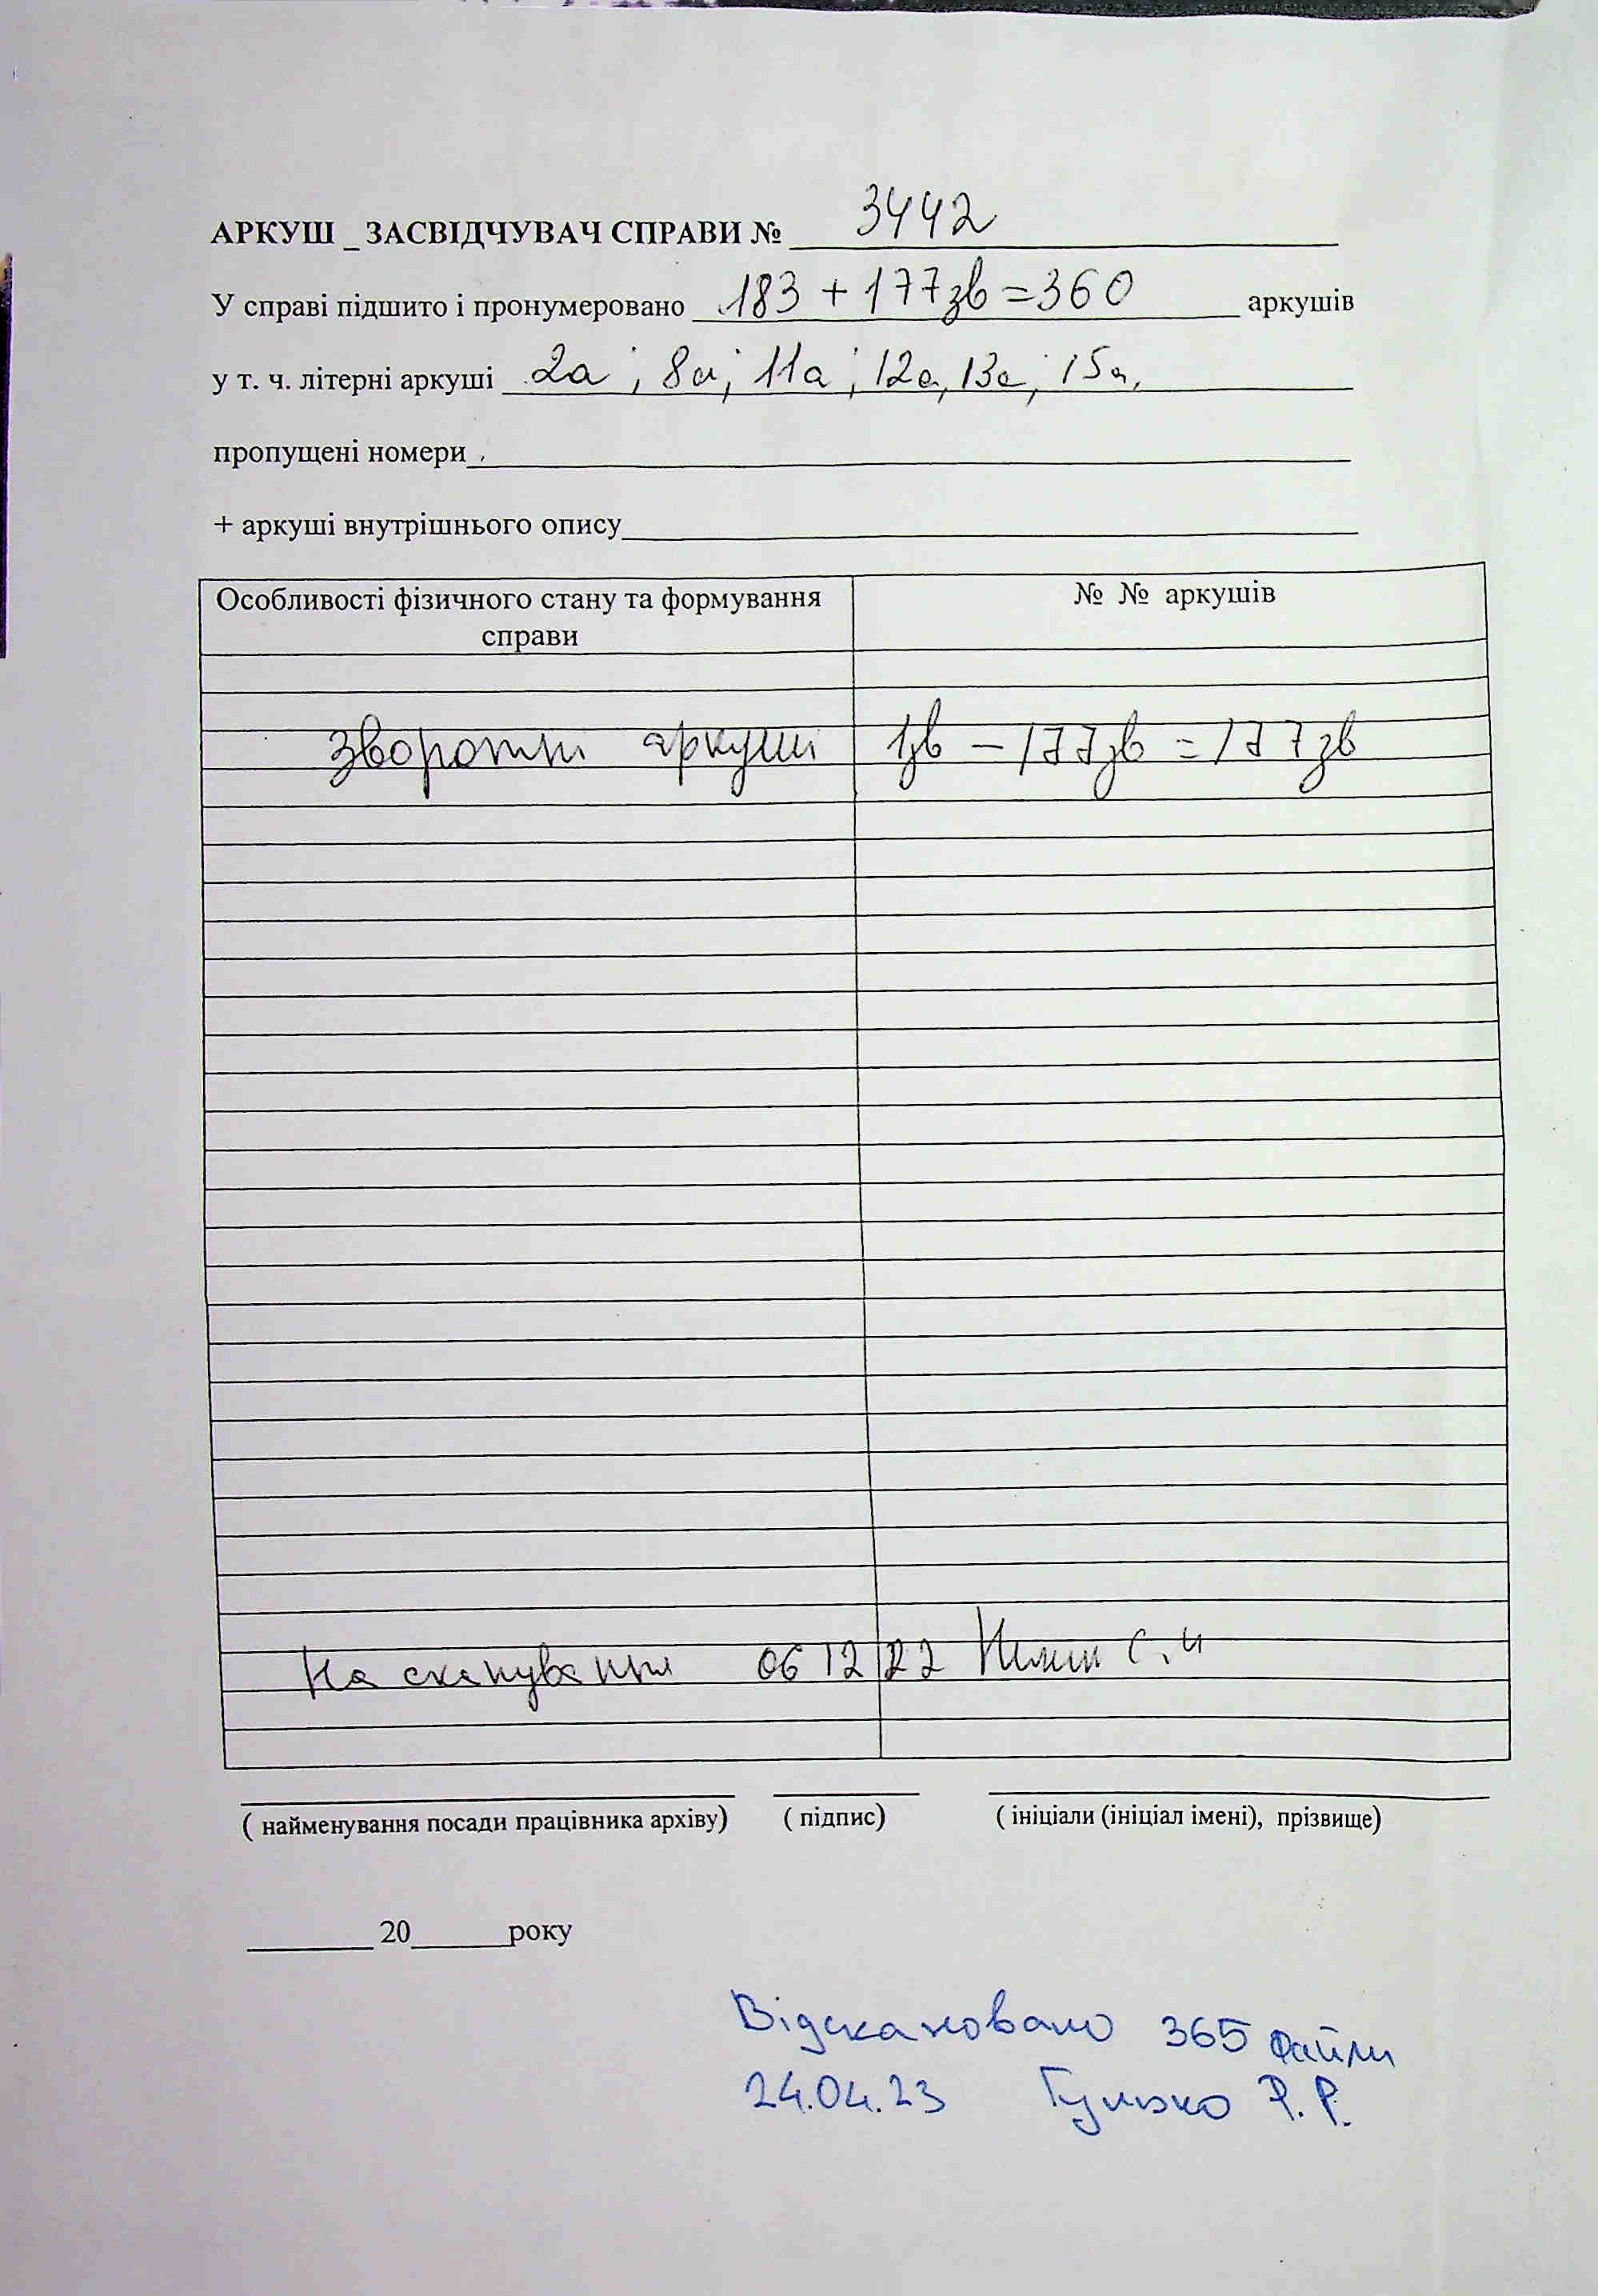 АРКУШ _ ЗАСВІДЧУВАЧ СПРАВИ № 3442
У справі підшито і пронумеровано 183 + 177зв = 360 аркушів
у т. ч. літерні аркуші 2а; 8а; 11а; 12а, 13а; 15а,
пропущені номери
+ аркуші внутрішнього опису
Особливості фізичного стану та формування справи
№ № аркушів
Зворотні аркуші 1зв – 177зв = 177зв
На сканування 06 12 22 С. И
( найменування посади працівника архіву) ( підпис) ( ініціали (ініціал імені), прізвище)
20 року
Відскановано 365 файли
24.04.23 Гулько Р. Р.